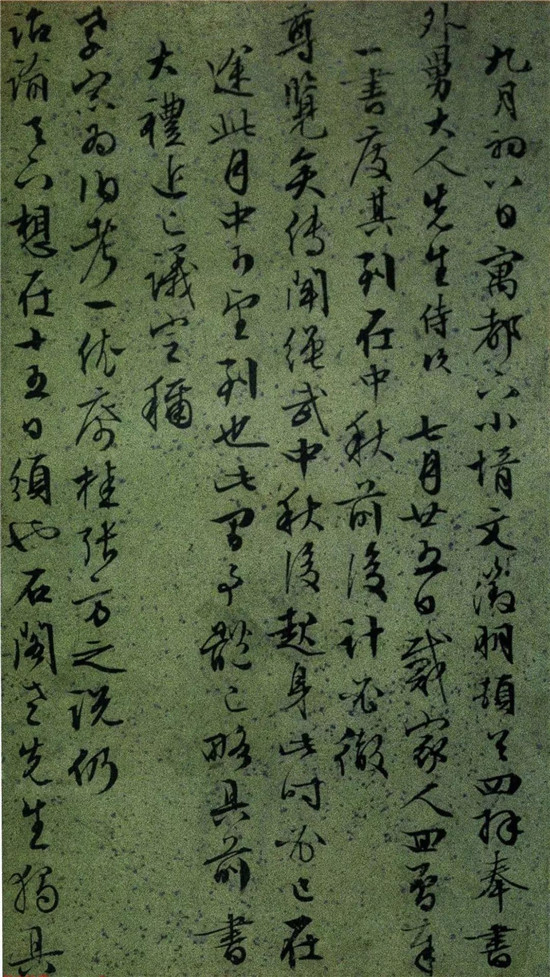 九月初八日寓都下小壻文徵明頓首四拜奉書
外舅大人先生侍次 七月廿五日戴家人回曾奉
一書度其到在中秋前後計必徹
尊覽矣傳聞繩武中秋後起身此時必已在
途此月中可望到也此間事體已略具前書
大禮近已議定稱
孝宗為伯考一依席桂張方之說仍
詔諭天下想在十五日頒也石閣老先生獨具